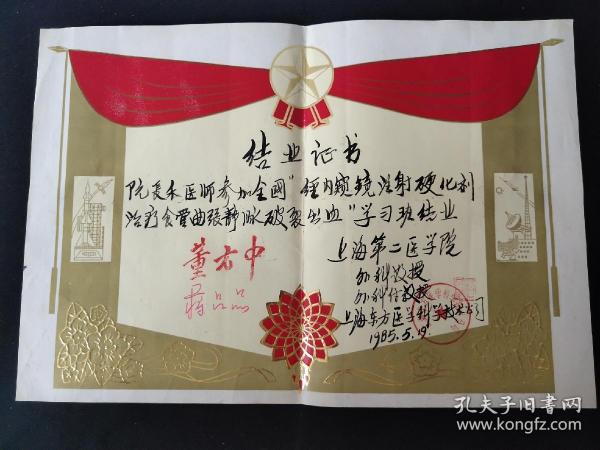 结业证书
阮良木医师参加全国“经内窥镜注射硬化剂
治疗食管曲张静脉破裂出血”学习班结业
上海第二医学院
董方中 外科教授
蒋吕品 外科教授
上海东方医学科学技术公司
1985.5.19
孔夫子旧书网
www.kongfz.com